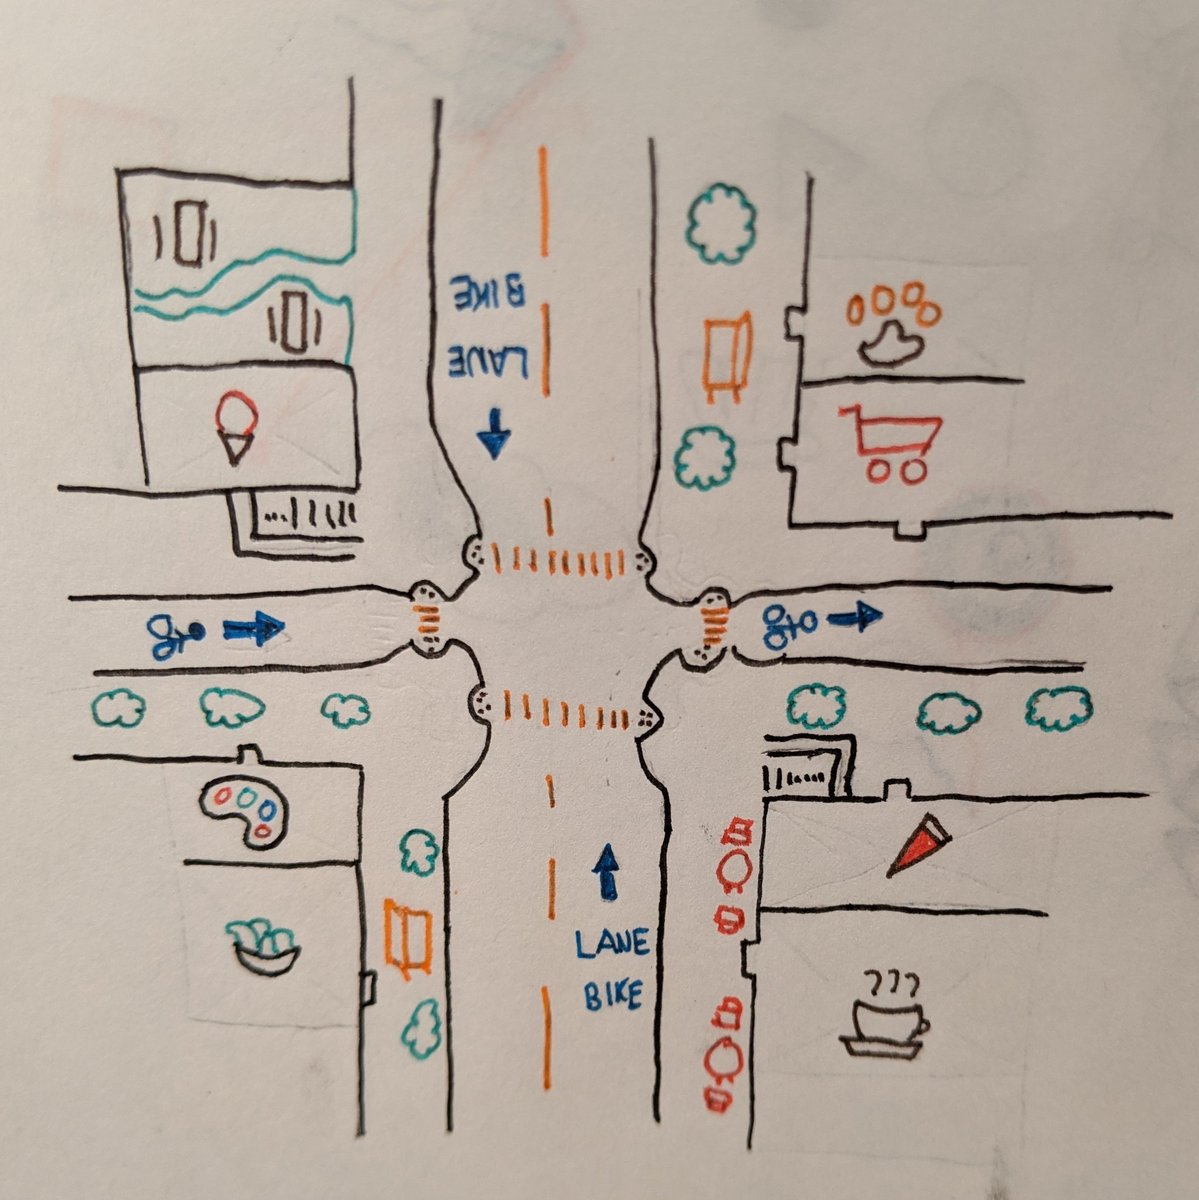 BIKE
LANE
LANE
BIKE